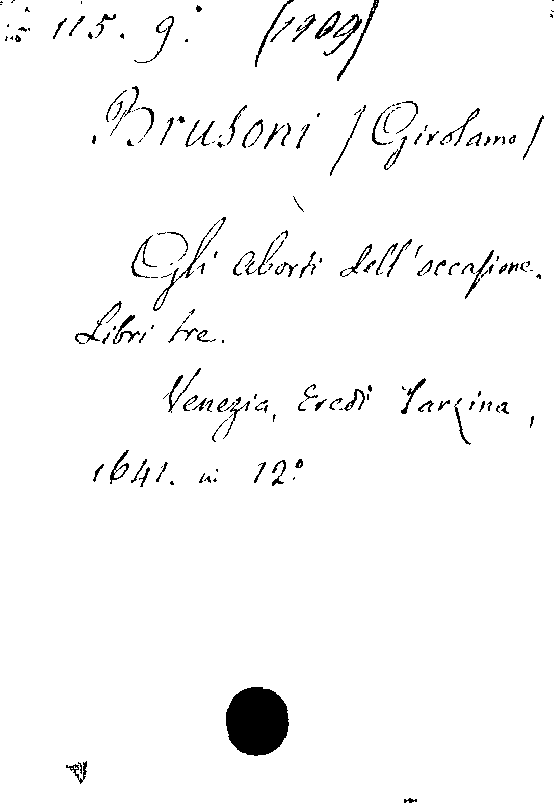 115. 9. (1909)
Brusoni / Girolamo /
Gli aborti dell'occasione.
Libri tre.
Venezia, Eredi Sarzina,
1641. in 12º